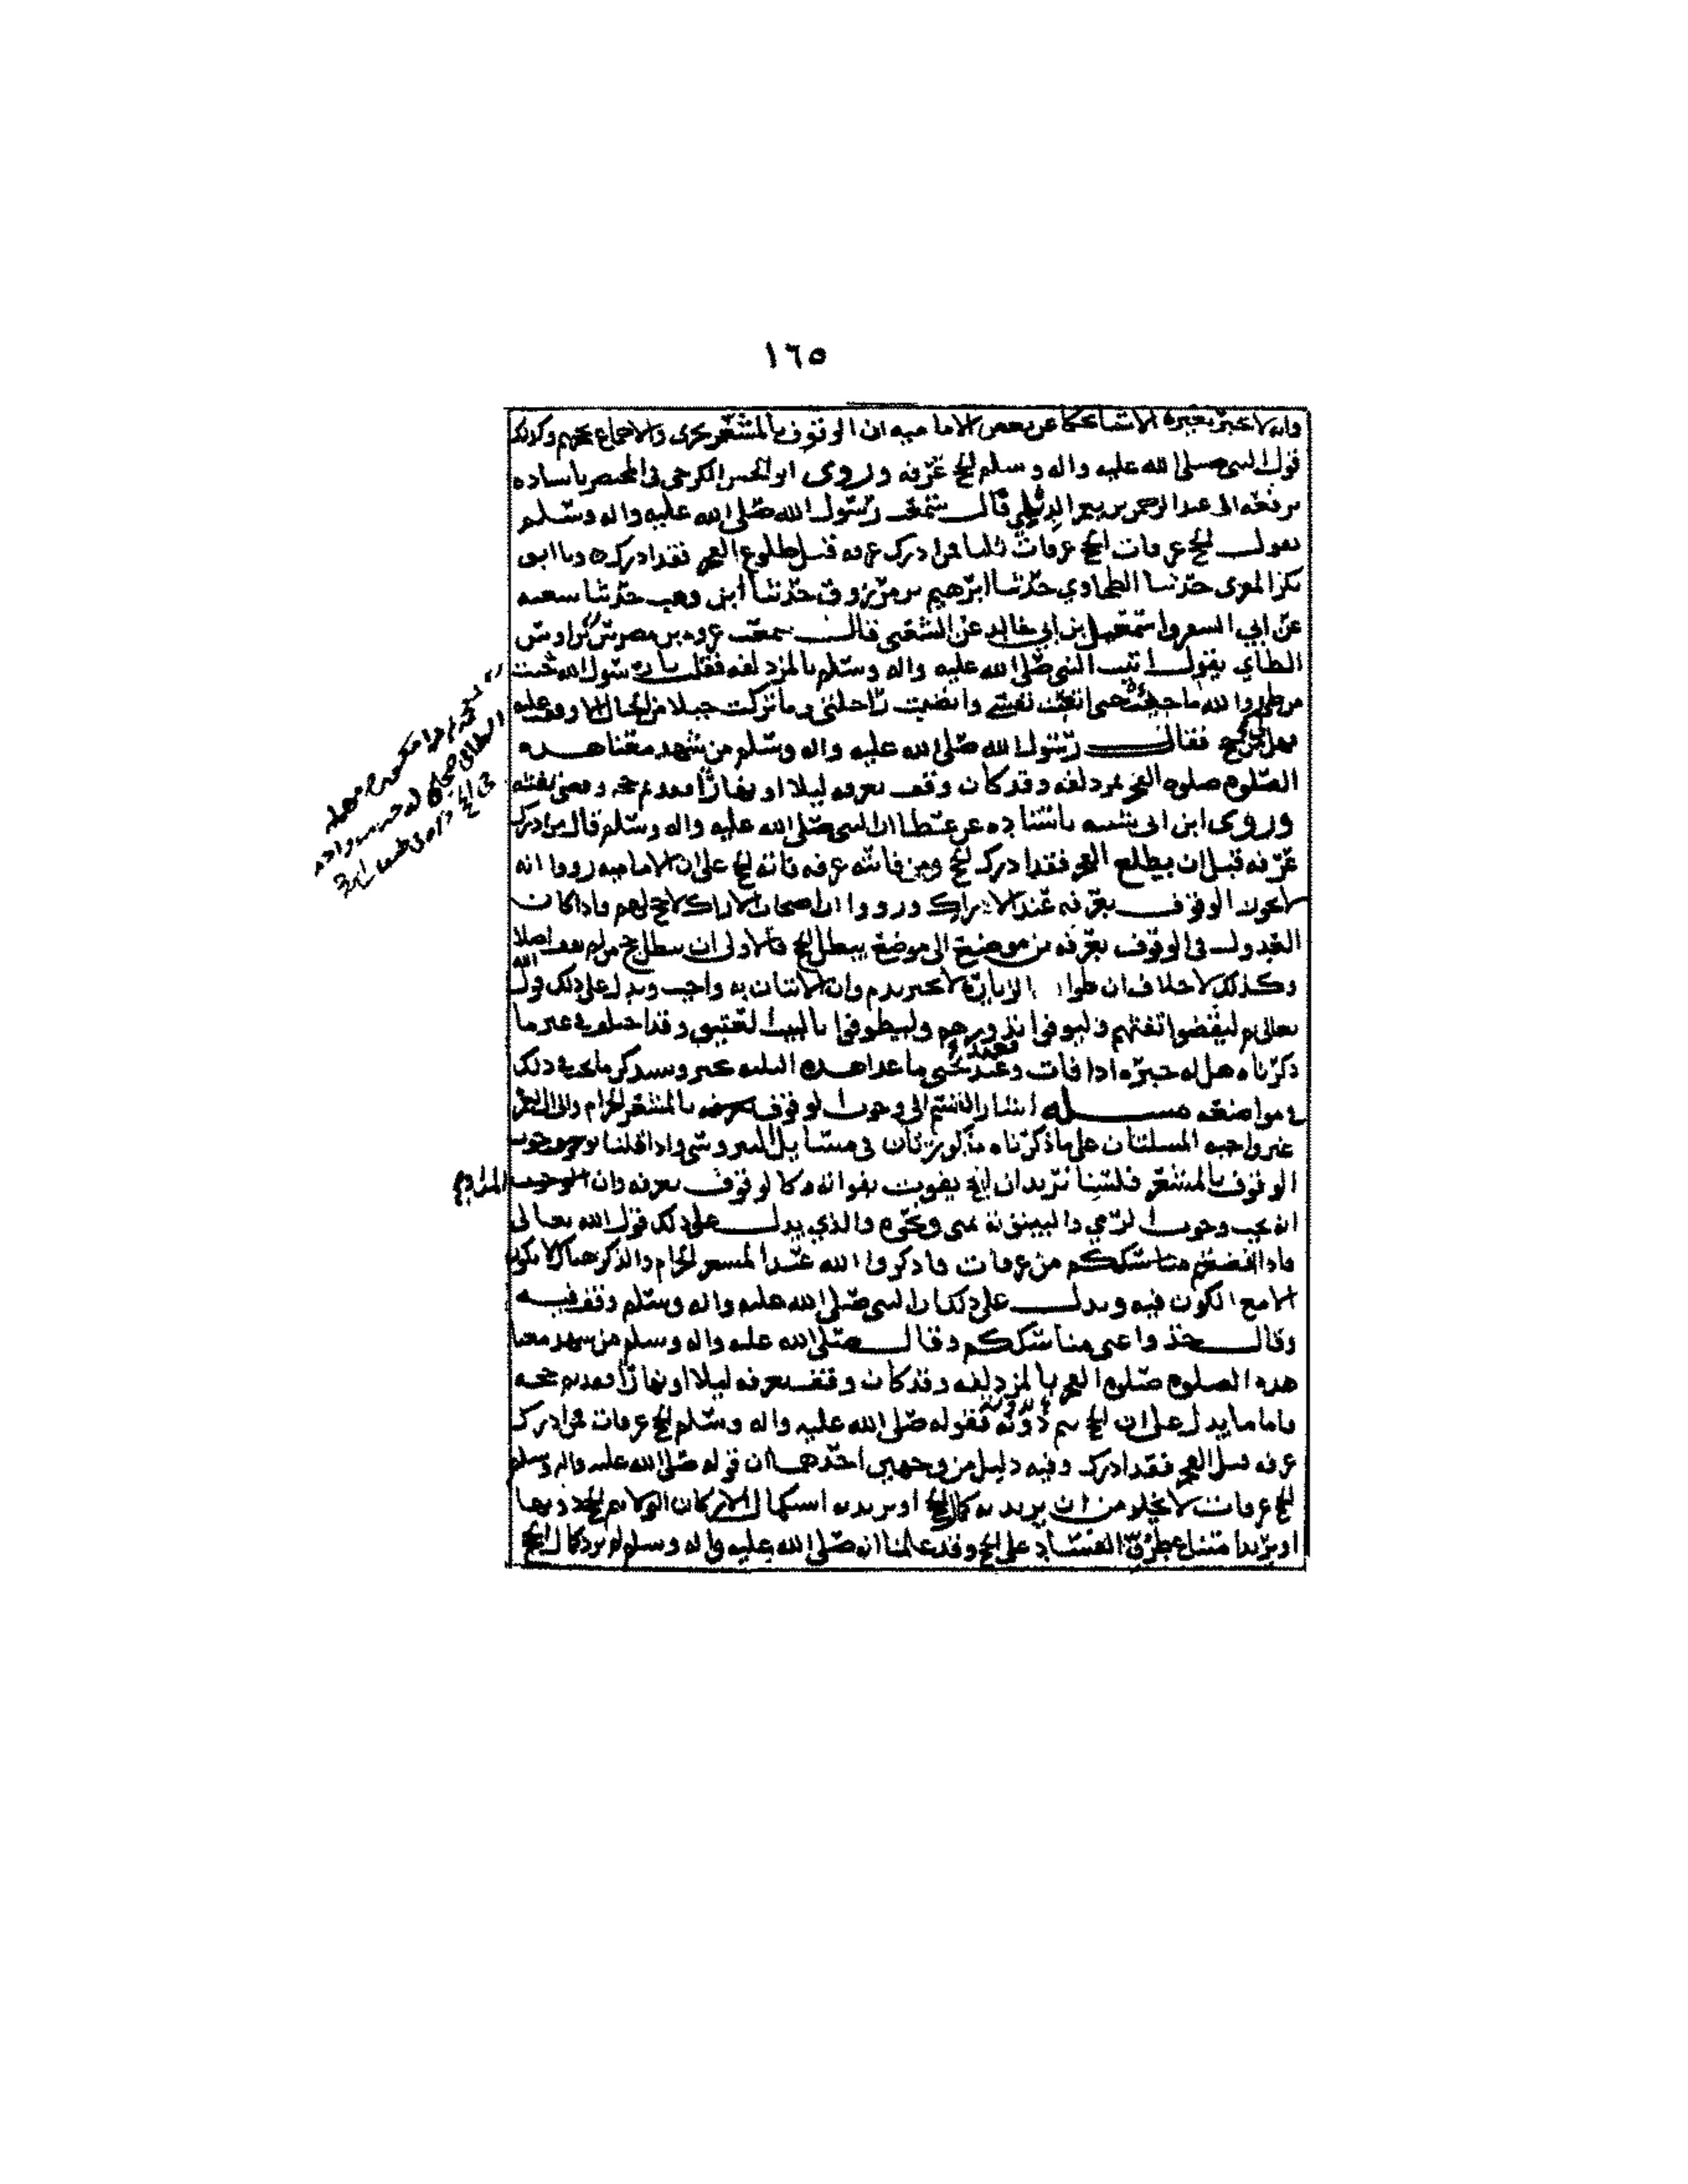 ١٦٥
وانه لا يجبر بغيره الا شيا يحكا عن بعض الاماميه ان الوقوف بالمشعر يجزى والاجماع يحجهم وكذلك
قول النبي صلى الله عليه واله وسلم الحج عرفه وروى ابو الحسن الكرخي في المختصر باسناده
يرفعه الى عبد الرحمن بن يعمر الديلي قال سمعت رسول الله صلى الله عليه واله وسلم
يقول الحج عرفات الحج عرفات ثلثا فمن ادرك عرفه قبل طلوع الفجر فقد ادرك ه وبا ابو
بكر المقري حدثنا الطحاوي حدثنا ابرهيم بن مرزوق حدثنا ابن وهب حدثنا سعبه
عن ابي السفر واسمعيل بن ابي خالد عن الشعبي قال سمعت عروه بن مضرس بن اوس
الطاي يقول اتيت النبي صلى الله عليه واله وسلم بالمزدلفه فقلت يا رسول الله جئت
من طي والله ما جئت حتى اتعبت نفسي وانضيت راحلتي وما تركت جبلا من الجبال الا وقفت عليه
فهل لي من حج فقال رسول الله صلى الله عليه واله وسلم من شهد معنا هذه
الصلوه صلوه الفجر بمزدلفه وقد كان وقف بعرفه ليلا او نهارا فقد تم حجه وقضى تفثه
وروى ابن ابي شيبه باسناده عن عطا ان النبي صلى الله عليه واله وسلم قال من ادرك
عرفه قبل ان يطلع الفجر فقد ادرك الحج ومن فاتته عرفه فاته الحج على ان الاماميه رووا انه
لا يجوز الوقوف بعرفه عند الاراك ورووا ان اصحاب الاراك لا حج لهم فاذا كان
العدول في الوقوف بعرفه من موضع الى موضع يبطل الحج فالاولى ان يبطل حج من لم يقف اصلا
وكذلك لا خلاف ان طواف الزيارة لا يجبر بدم وان الاتيان به واجب ويدل على ذلك قول الله
تعالى ثم ليقضوا تفثهم وليوفوا نذورهم وليطوفوا بالبيت العتيق وقد اختلف في غير ما
ذكرناه هل له جبره اذا فات وعند يحيى ما عدا هذه الثلثه يجبر وسنذكر ما يجب في ذلك
في مواضعه مسـله اشار القسم الى وجوب الوقوف بالمشعر الحرام والى ان العمره
غير واجبه المسلتان على ما ذكرناه مذكورتان في مسايل النيروسي واذا قلنا بوجوب
الوقوف بالمشعر فلسنا نريد ان الحج يفوت بفواته كالوقوف بعرفه وان المراد به
انه يجب وجوب الرمي والبيتوته بمنى ونحوه والذي يدل على ذلك قول الله تعالى
فاذا افضتم من عرفات فاذكروا الله عند المشعر الحرام والذكر هناك لا يكون
الا مع الكون فيه ويدل على ذلك ان النبي صلى الله عليه واله وسلم وقف فيه
وقال خذوا عني مناسككم وقال صلى الله عليه واله وسلم من شهد معنا
هذه الصلوه صلوه الفجر بالمزدلفه وقد كان وقف بعرفه ليلا او نهارا فقد تم حجه
فاما ما يدل على ان الحج يتم دونه فقوله صلى الله عليه واله وسلم الحج عرفات فمن ادرك
عرفه قبل الفجر فقد ادرك وفيه دليل من وجهين احدهما ان قوله صلى الله عليه واله وسلم
الحج عرفات لا يخلو من ان يريد به كمال الحج او يريد به استكمال الاركان التي لا يتم الحج دونها
او يريد امتناع طرق الفساد على الحج وقد علمنا انه صلى الله عليه واله وسلم لم يرد كمال الحج